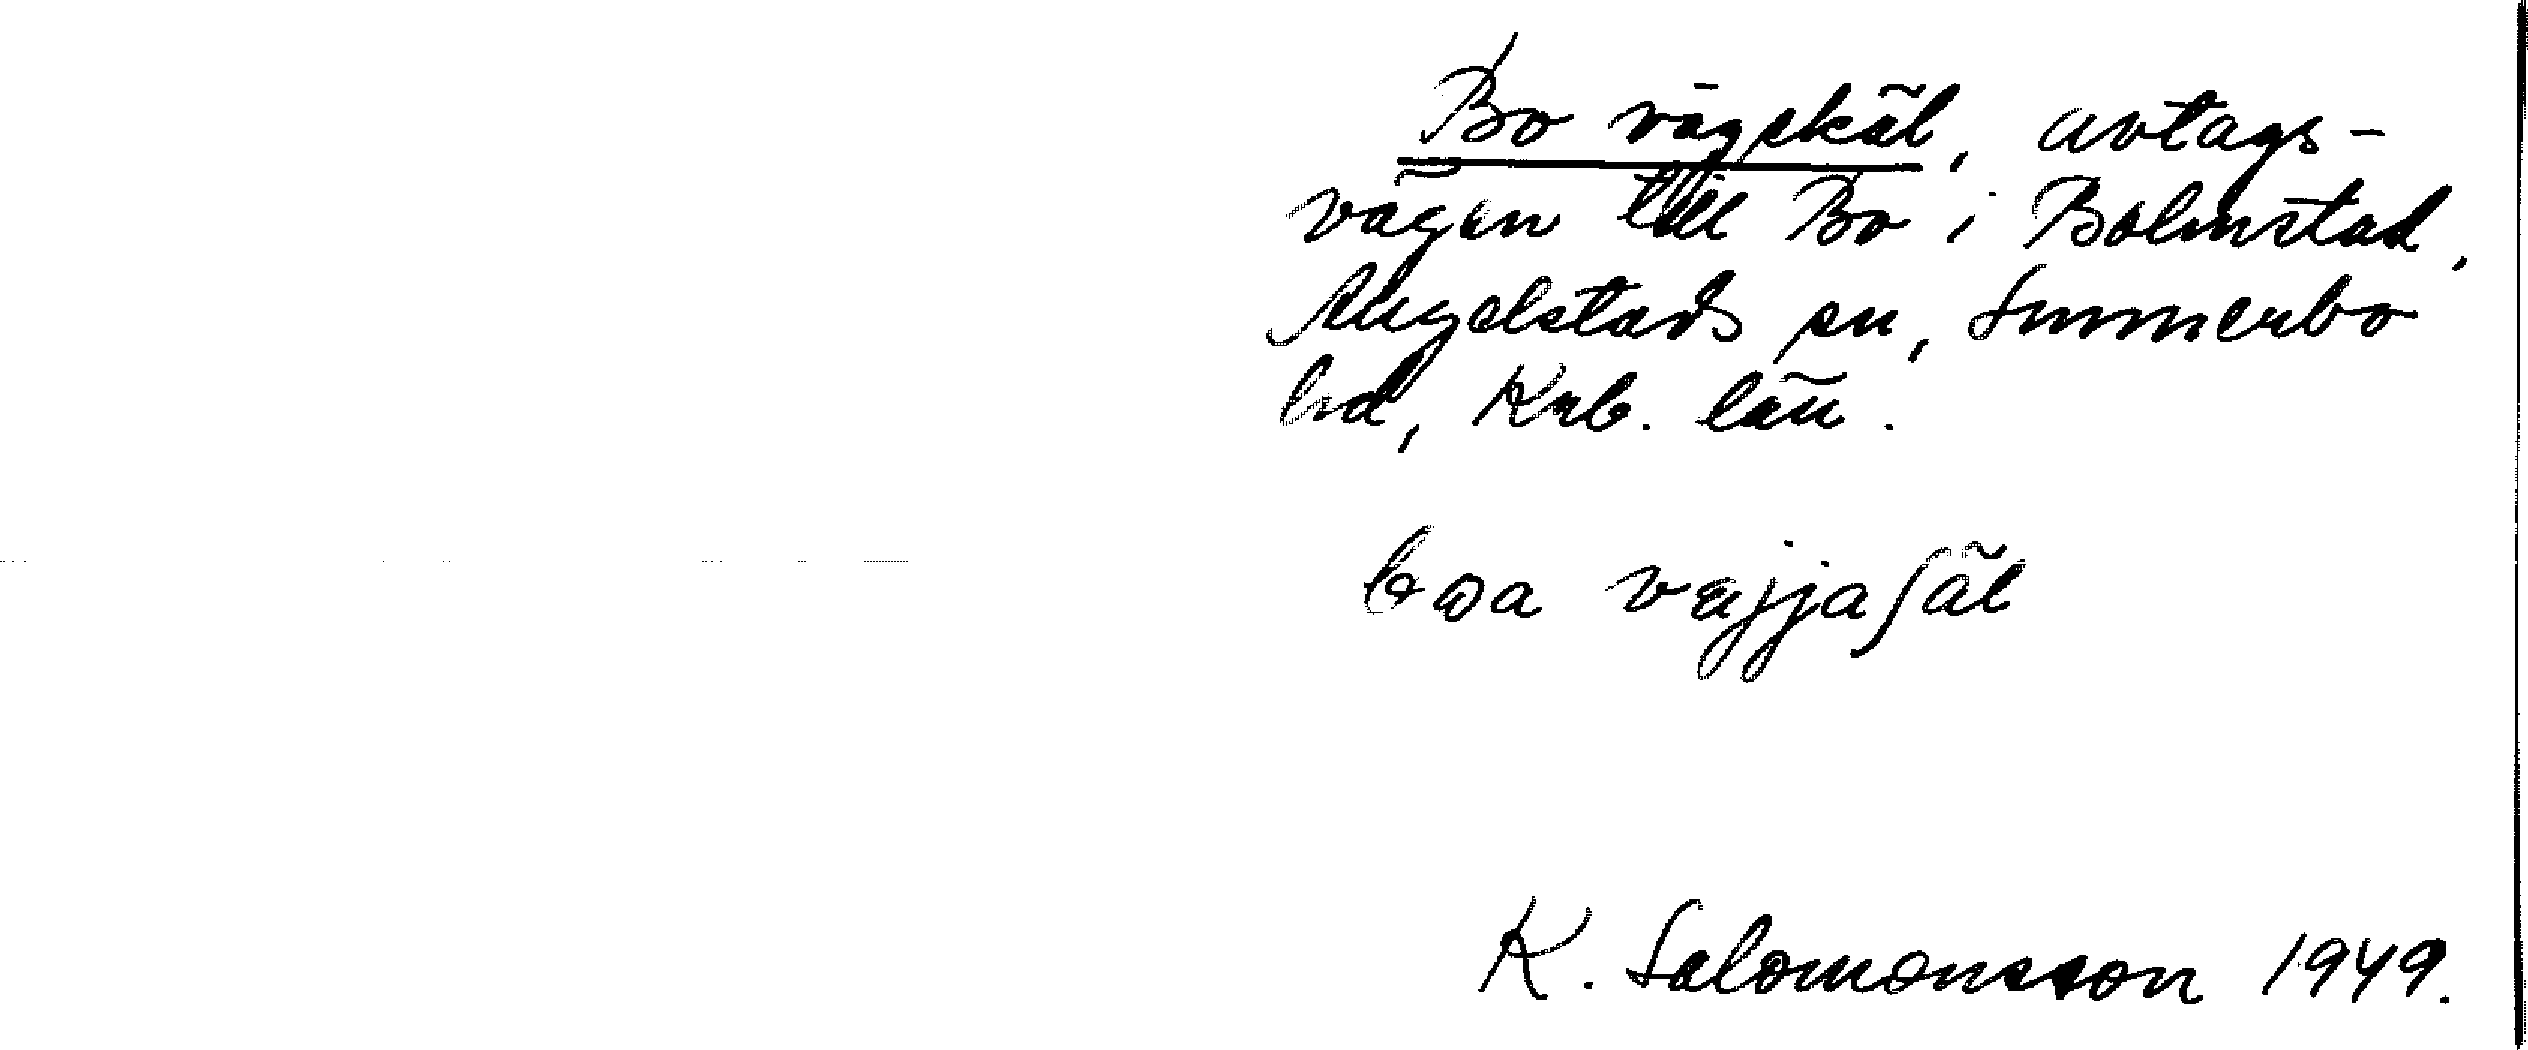 Bo vägskäl, avtags-
vägen till Bo i Bolmstad,
Angelstads sn, Sunnerbo
hd, Krb. län.
boa väjjaʃäl
K. Salomonsson 1949.